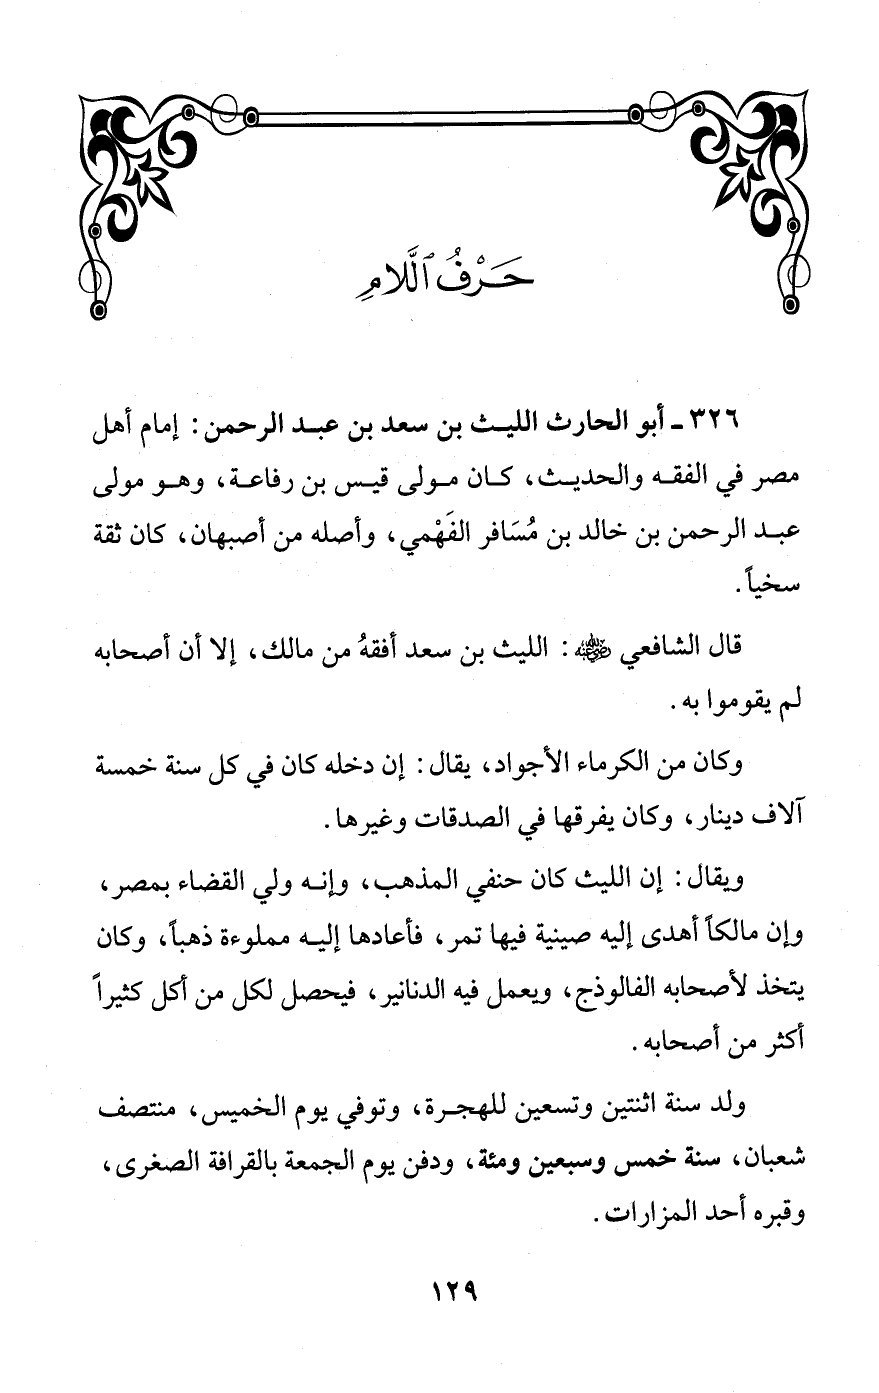 حَرْفُ ٱللَّامِ
٣٢٦ ـ أبو الحارث الليث بن سعد بن عبد الرحمن: إمام أهل
مصر في الفقه والحديث، كان مولى قيس بن رفاعة، وهو مولى
عبد الرحمن بن خالد بن مُسَافر الفَهْمي، وأصله من أصبهان، كان ثقة
سخياً.
قال الشافعي رضي الله عنه: الليث بن سعد أفقهُ من مالك، إلا أن أصحابه
لم يقوموا به.
وكان من الكرماء الأجواد، يقال: إن دخله كان في كل سنة خمسة
آلاف دينار، وكان يفرقها في الصدقات وغيرها.
ويقال: إن الليث كان حنفي المذهب، وإنه ولي القضاء بمصر،
وإن مالكاً أهدى إليه صينية فيها تمر، فأعادها إليه مملوءة ذهباً، وكان
يتخذ لأصحابه الفالوذج، ويعمل فيه الدنانير، فيحصل لكل من أكل كثيراً
أكثر من أصحابه.
ولد سنة اثنتين وتسعين للهجرة، وتوفي يوم الخميس، منتصف
شعبان، سنة خمس وسبعين ومئة، ودفن يوم الجمعة بالقرافة الصغرى،
وقبره أحد المزارات.
١٢٩